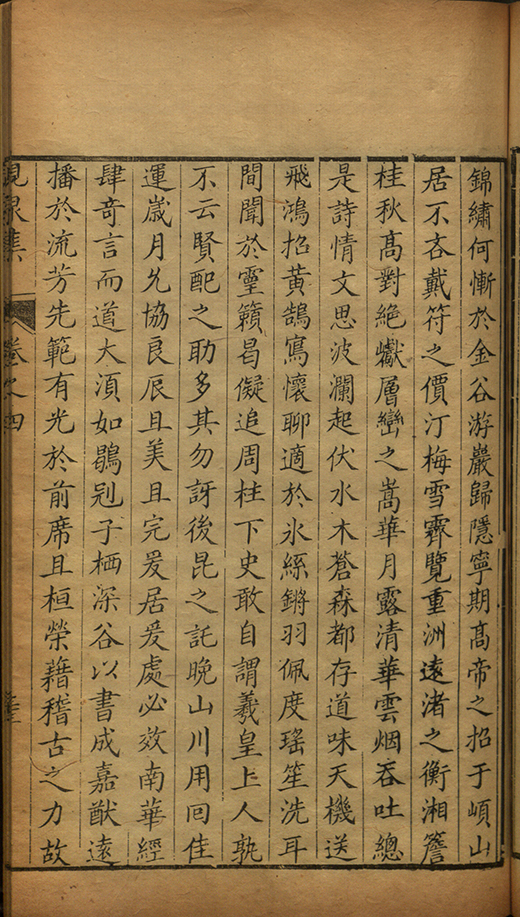 錦繡何慚於金谷游巖歸隱寧期髙帝之招于㟧山
居不吝戴符之價汀梅雪霽覽重洲遠渚之衡湘簷
桂秋髙對絶巘層巒之嵩華月露清華雲烟吞吐總
是詩情文思波瀾起伏水木蒼森都存道味天機送
飛鴻招黃鵠寫懷聊適於氷絲鏘羽佩度瑤笙洗耳
間聞於靈籟曷儗追周柱下史敢自謂羲皇上人孰
不云賢配之助多其勿訝後昆之託晚山川用囘佳
運歲月允協良辰且美且完爰居爰處必效南華經
肆竒言而道大湏如鶡冠子栖深谷以書成嘉猷遠
播於流芳先範有光於前席且桓榮藉稽古之力故
峴泉集 卷之四